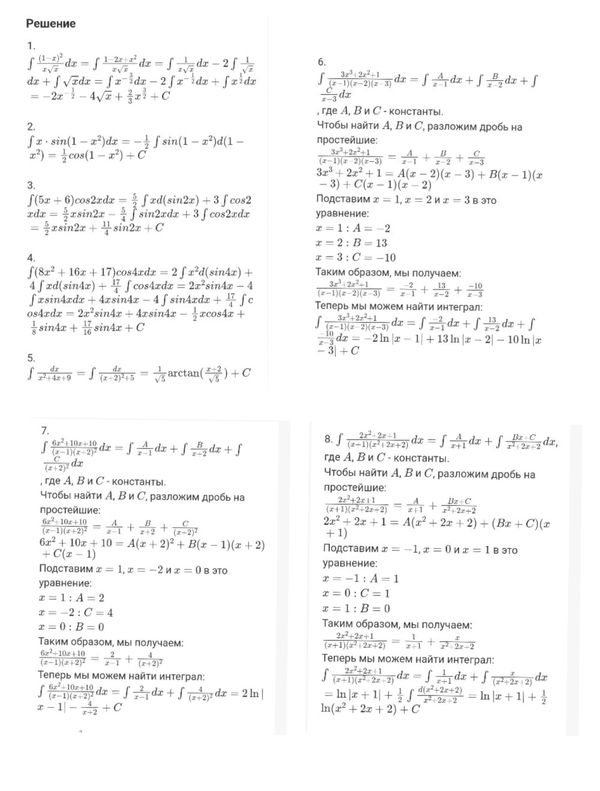 Решение
1.
∫ (1−x)²/(x√x) dx = ∫ (1−2x+x²)/(x√x) dx = ∫ 1/(x√x) dx − 2 ∫ 1/√x
dx + ∫ √x dx = ∫ x^(−3/2) dx − 2 ∫ x^(−1/2) dx + ∫ x^(1/2) dx
= −2x^(−1/2) − 4√x + (2/3)x^(3/2) + C
2.
∫ x · sin(1 − x²)dx = −1/2 ∫ sin(1 − x²)d(1 −
x²) = 1/2 cos(1 − x²) + C
3.
∫(5x + 6)cos2xdx = 5/2 ∫ xd(sin2x) + 3 ∫ cos2
xdx = 5/2 xsin2x − 5/4 ∫ sin2xdx + 3 ∫ cos2xdx
= 5/2 xsin2x + 11/4 sin2x + C
4.
∫(8x² + 16x + 17)cos4xdx = 2 ∫ x²d(sin4x) +
4 ∫ xd(sin4x) + 17/4 ∫ cos4xdx = 2x²sin4x − 4
∫ xsin4xdx + 4xsin4x − 4 ∫ sin4xdx + 17/4 ∫ c
os4xdx = 2x²sin4x + 4xsin4x − 1/2 xcos4x +
1/8 sin4x + 17/16 sin4x + C
5.
∫ dx/(x²+4x+9) = ∫ dx/((x+2)²+5) = 1/√5 arctan((x+2)/√5) + C
6.
∫ (3x³+2x²+1)/((x−1)(x−2)(x−3)) dx = ∫ A/(x−1) dx + ∫ B/(x−2) dx + ∫
C/(x−3) dx
, где A, B и C - константы.
Чтобы найти A, B и C, разложим дробь на
простейшие:
(3x³+2x²+1)/((x−1)(x−2)(x−3)) = A/(x−1) + B/(x−2) + C/(x−3)
3x³ + 2x² + 1 = A(x − 2)(x − 3) + B(x − 1)(x
− 3) + C(x − 1)(x − 2)
Подставим x = 1, x = 2 и x = 3 в это
уравнение:
x = 1 : A = −2
x = 2 : B = 13
x = 3 : C = −10
Таким образом, мы получаем:
(3x³+2x²+1)/((x−1)(x−2)(x−3)) = −2/(x−1) + 13/(x−2) + −10/(x−3)
Теперь мы можем найти интеграл:
∫ (3x³+2x²+1)/((x−1)(x−2)(x−3)) dx = ∫ −2/(x−1) dx + ∫ 13/(x−2) dx + ∫
−10/(x−3) dx = −2 ln |x − 1| + 13 ln |x − 2| − 10 ln |x
− 3| + C
7.
∫ (6x²+10x+10)/((x−1)(x+2)²) dx = ∫ A/(x−1) dx + ∫ B/(x+2) dx + ∫
C/(x+2)² dx
, где A, B и C - константы.
Чтобы найти A, B и C, разложим дробь на
простейшие:
(6x²+10x+10)/((x−1)(x+2)²) = A/(x−1) + B/(x+2) + C/(x−2)²
6x² + 10x + 10 = A(x + 2)² + B(x − 1)(x + 2)
+ C(x − 1)
Подставим x = 1, x = −2 и x = 0 в это
уравнение:
x = 1 : A = 2
x = −2 : C = 4
x = 0 : B = 0
Таким образом, мы получаем:
(6x²+10x+10)/((x−1)(x+2)²) = 2/(x−1) + 4/(x+2)²
Теперь мы можем найти интеграл:
∫ (6x²+10x+10)/((x−1)(x+2)²) dx = ∫ 2/(x−1) dx + ∫ 4/(x+2)² dx = 2 ln |
x − 1| − 4/(x+2) + C
8. ∫ (2x²+2x+1)/((x+1)(x²+2x+2)) dx = ∫ A/(x+1) dx + ∫ (Bx+C)/(x²+2x+2) dx,
где A, B и C - константы.
Чтобы найти A, B и C, разложим дробь на
простейшие:
(2x²+2x+1)/((x+1)(x²+2x+2)) = A/(x+1) + (Bx+C)/(x²+2x+2)
2x² + 2x + 1 = A(x² + 2x + 2) + (Bx + C)(x
+ 1)
Подставим x = −1, x = 0 и x = 1 в это
уравнение:
x = −1 : A = 1
x = 0 : C = 1
x = 1 : B = 0
Таким образом, мы получаем:
(2x²+2x+1)/((x+1)(x²+2x+2)) = 1/(x+1) + x/(x²+2x+2)
Теперь мы можем найти интеграл:
∫ (2x²+2x+1)/((x+1)(x²+2x+2)) dx = ∫ 1/(x+1) dx + ∫ x/(x²+2x+2) dx
= ln |x + 1| + 1/2 ∫ d(x²+2x+2)/(x²+2x+2) = ln |x + 1| + 1/2
ln(x² + 2x + 2) + C